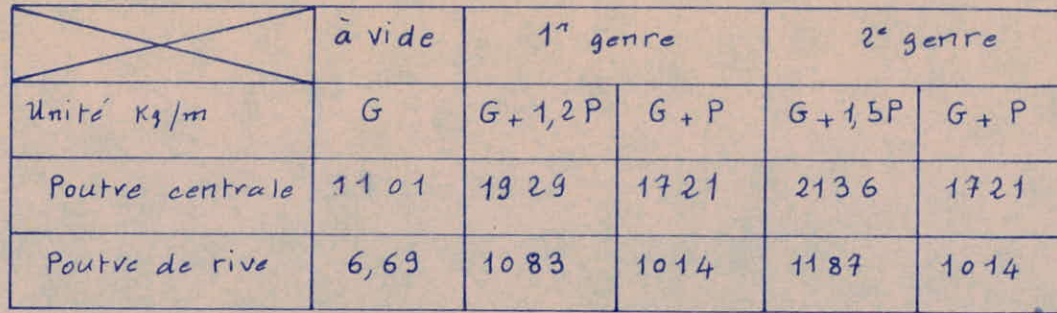 à vide 1r genre 2e genre
Unité Kg/m G G + 1,2P G + P G + 1,5P G + P
Poutre centrale 1101 1929 1721 2136 1721
Poutre de rive 6,69 1083 1014 1187 1014